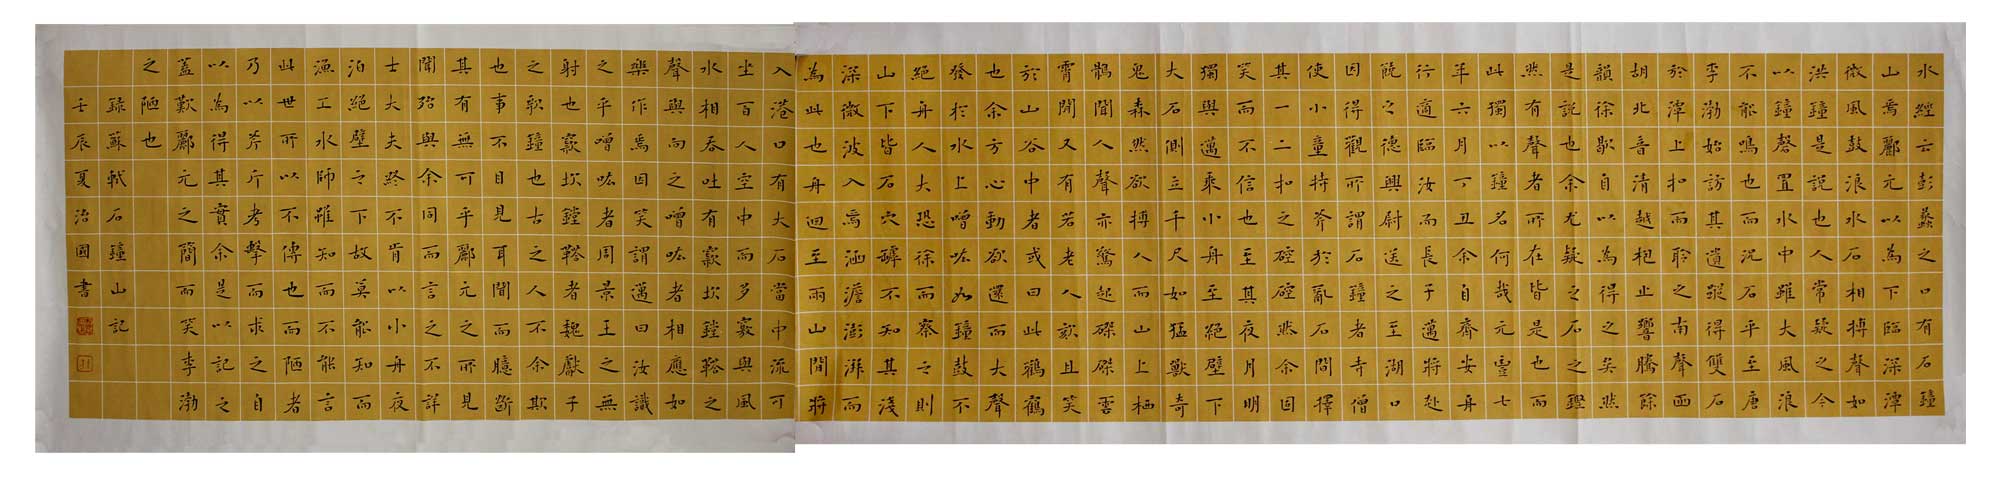 水經云彭蠡之口有石鐘
山焉酈元以為下臨深潭
微風鼓浪水石相搏聲如
洪鐘是說也人常疑之今
以鐘磬置水中雖大風浪
不能鳴也而況石乎至唐
李渤始訪其遺蹤得雙石
於潭上扣而聆之南聲函
胡北音清越枹止響騰餘
韻徐歇自以為得之矣然
是說也余尤疑之石之鏗
然有聲者所在皆是也而
此獨以鐘名何哉元豐七
年六月丁丑余自齊安舟
行適臨汝而長子邁將赴
饒之德興尉送之至湖口
因得觀所謂石鐘者寺僧
使小童持斧於亂石間擇
其一二扣之硿硿然余固
笑而不信也至其夜月明
獨與邁乘小舟至絕壁下
大石側立千尺如猛獸奇
鬼森然欲搏人而山上栖
鶻聞人聲亦驚起磔磔雲
霄間又有若老人欬且笑
於山谷中者或曰此鸛鶴
也余方心動欲還而大聲
發於水上噌吰如鐘鼓不
絕舟人大恐徐而察之則
山下皆石穴罅不知其淺
深微波入焉涵澹澎湃而
為此也舟迴至兩山間將
入港口有大石當中流可
坐百人空中而多竅與風
水相吞吐有窾坎鏜鞳之
聲與向之噌吰者相應如
樂作焉因笑謂邁曰汝識
之乎噌吰者周景王之無
射也窾坎鏜鞳者魏獻子
之歌鐘也古之人不余欺
也事不目見耳聞而臆斷
其有無可乎酈元之所見
聞殆與余同而言之不詳
士大夫終不肯以小舟夜
泊絕壁之下故莫能知而
漁工水師雖知而不能言
此世所以不傳也而陋者
乃以斧斤考擊而求之自
以為得其實余是以記之
蓋歎酈元之簡而笑李渤
之陋也
錄蘇軾石鐘山記
壬辰夏治國書